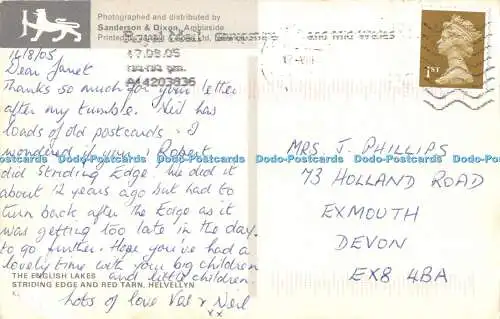 Photographed and distributed by
Sanderson & Dixon, Ambleside
Royal Mail
17.08.05
A44203836
1ST
14/8/05
Dear Janet
Thanks so much for your letter
after my tumble. Neil has
loads of old postcards. I
wondered if you & Robert
did Striding Edge. We did it
about 12 years ago but had to
turn back after the Edge as it
was getting too late in the day
to go further. Hope you've had a
lovely time with your big children
and little children
THE ENGLISH LAKES
STRIDING EDGE AND RED TARN, HELVELLYN
Lots of love Val & Neil
xx
MRS. J. PHILLIPS
73 HOLLAND ROAD
EXMOUTH
DEVON
EX8 4BA
Dodo-Postcards Dodo-Postcards Dodo-Postcards Dodo-Postcards Dodo-Postcards